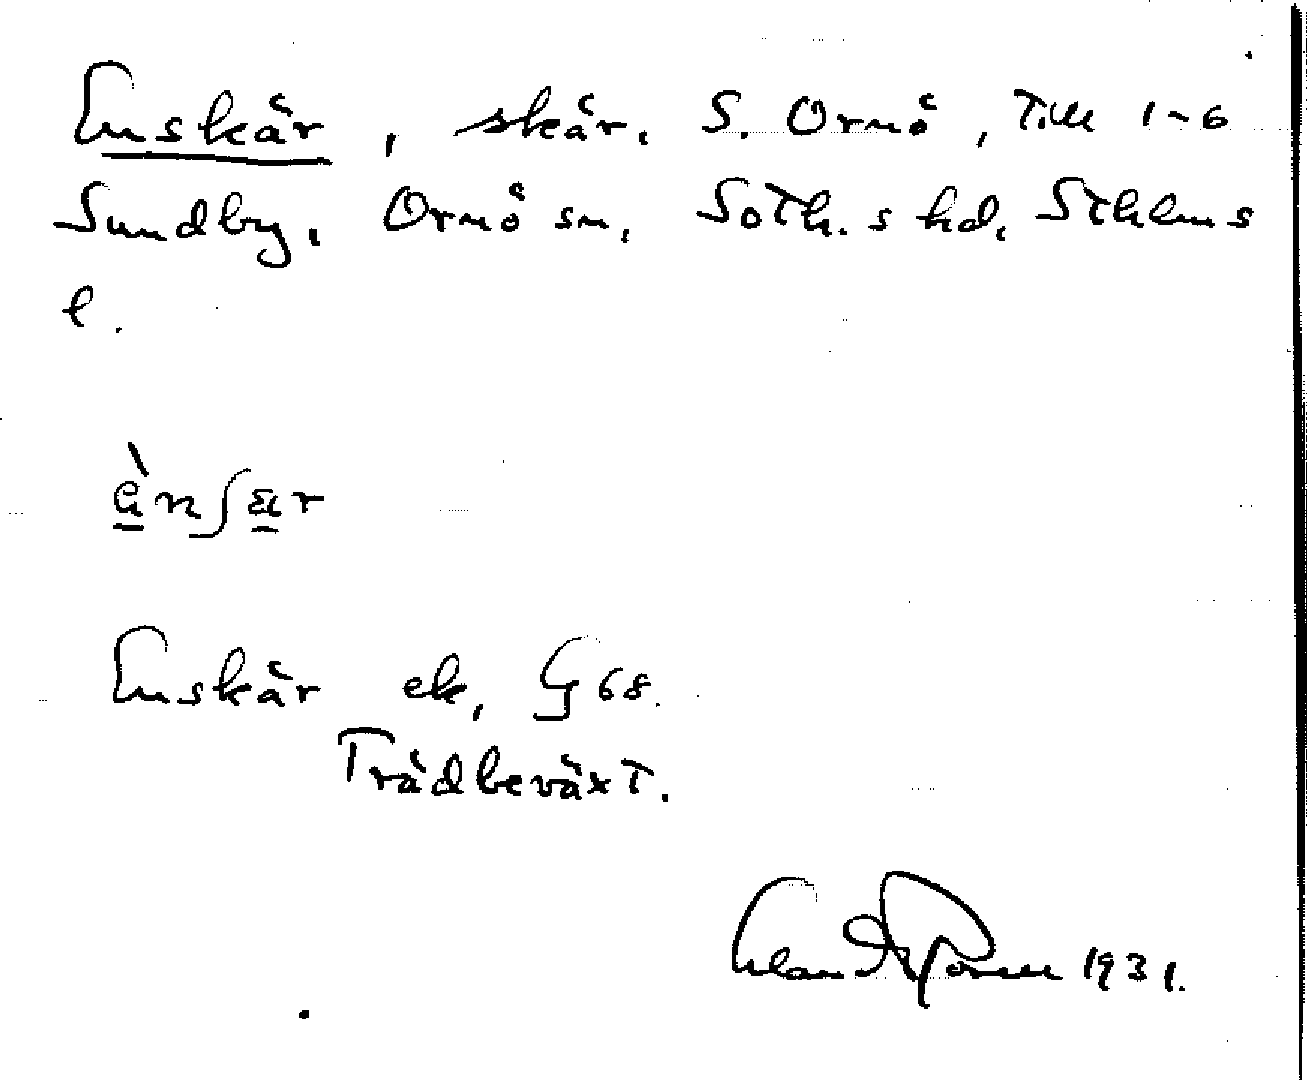 Enskär, skär. S. Ornö, Till 1-6
Sundby, Ornö sn, Soth.s hd, Sthlms
l.
è̱nʃä̱r
Enskär ek, G 68.
Trädbeväxt.
1931.